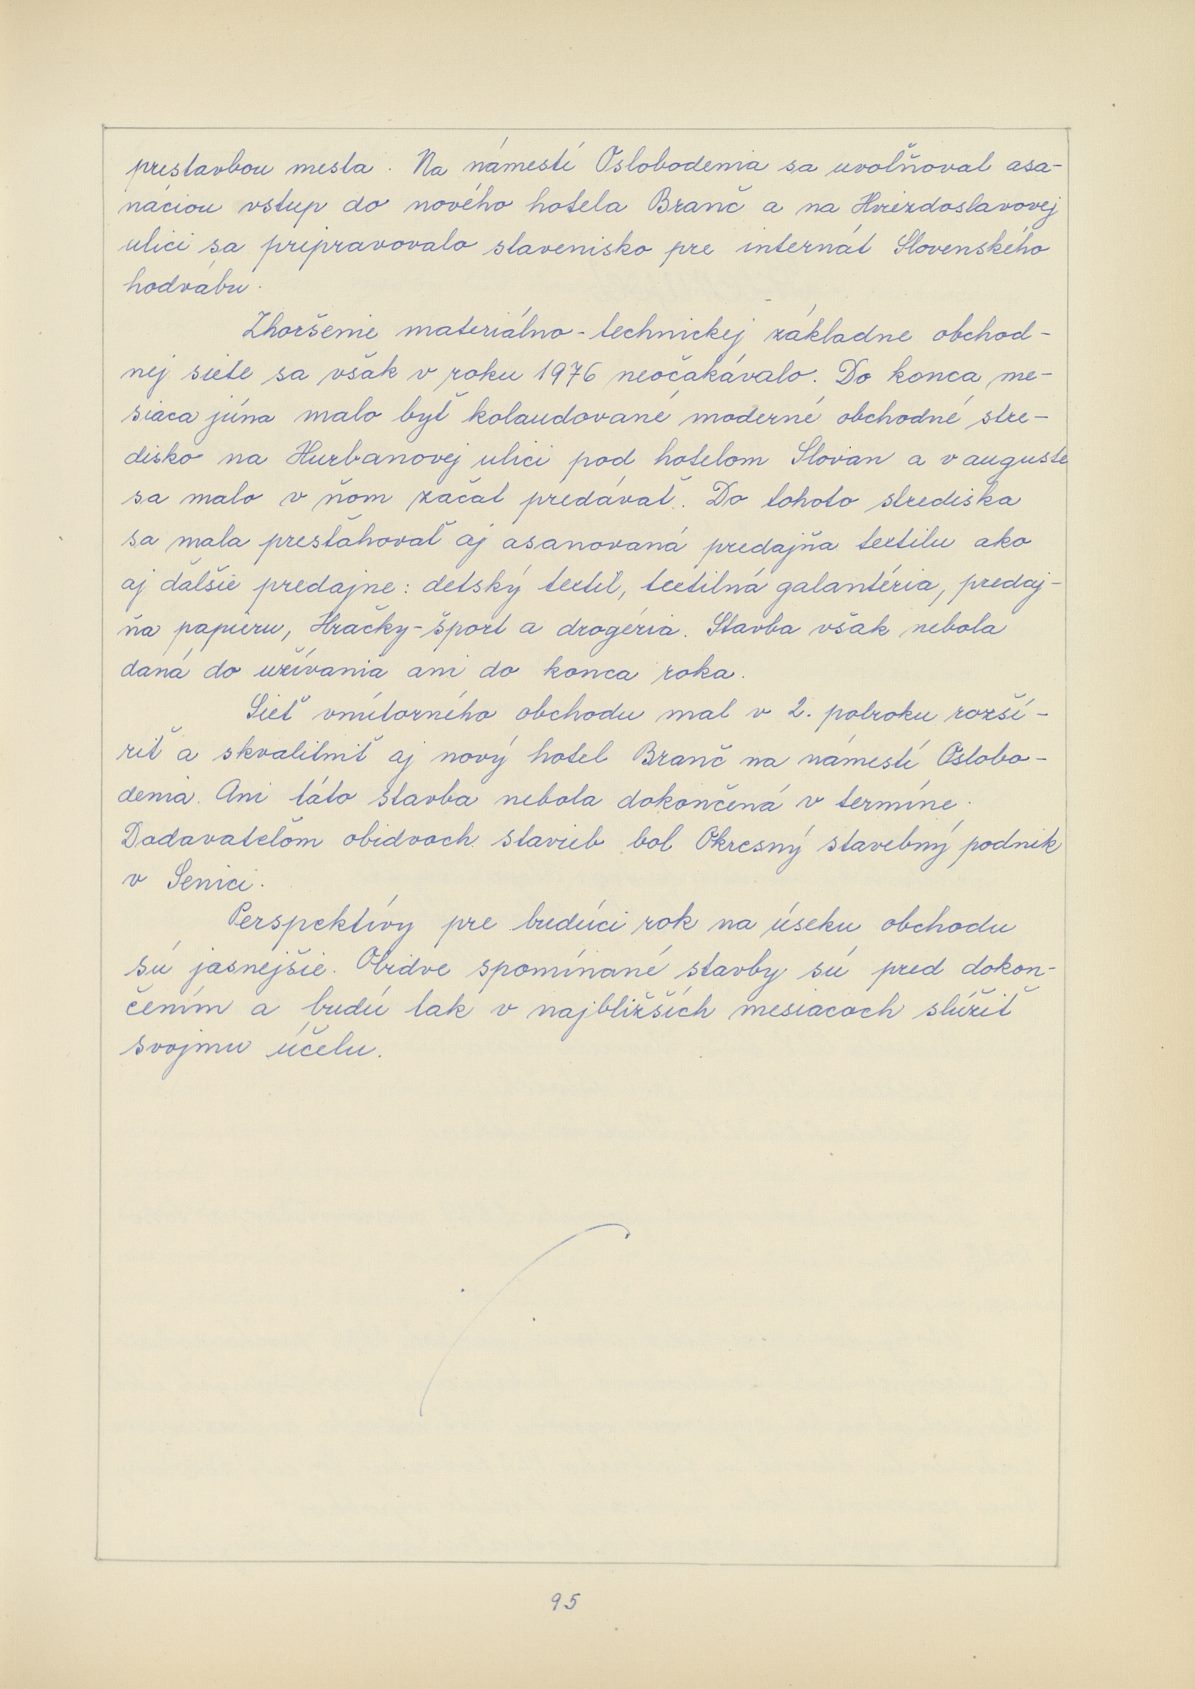 prestavbou mesta. Na námestí Oslobodenia sa uvolňoval asa-
náciou vstup do nového hotela Branč a na Hviezdoslavovej
ulici sa pripravovalo stavenisko pre internát Slovenského
hodvábu.
Zhoršenie materiálno-technickej základne obchod-
nej siete sa však v roku 1976 neočakávalo. Do konca me-
siaca júna malo byť kolaudované moderné obchodné stre-
disko na Hurbanovej ulici pod hotelom Slovan a v auguste
sa malo v ňom začať predávať. Do tohoto strediska
sa mala presťahovať aj asanovaná predajňa textilu ako
aj ďalšie predajne: detský textil, textilná galantéria, predaj-
ňa papieru, Hračky-šport a drogéria. Stavba však nebola
daná do užívania ani do konca roka.
Sieť vnútorného obchodu mal v 2. polroku rozší-
riť a skvalitniť aj nový hotel Branč na námestí Oslobo-
denia. Ani táto stavba nebola dokončená v termíne.
Dodavateľom obidvoch stavieb bol Okresný stavebný podnik
v Senici.
Perspektívy pre budúci rok na úseku obchodu
sú jasnejšie. Obidve spomínané stavby sú pred dokon-
čením a budú tak v najbližších mesiacoch slúžiť
svojmu účelu.
95